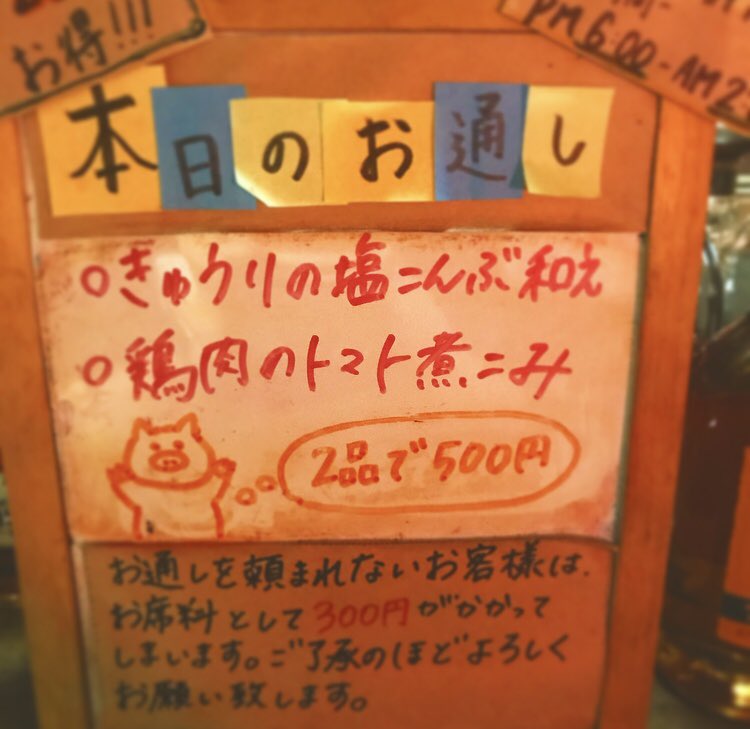 お得!!!
PM6:00-AM2
本日のお通し
○きゅうりの塩こんぶ和え
○鶏肉のトマト煮こみ
2品で500円
お通しを頼まれないお客様は、
お席料として300円がかかって
しまいます。ご了承のほどよろしく
お願い致します。